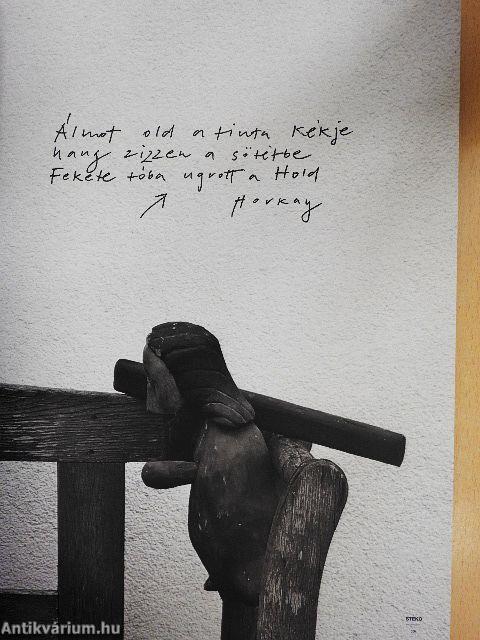 Álmot old a tinta kékje
hang zizzen a sötétbe
Fekete tóba ugrott a Hold
Horkay
STEKO
Antikvárium.hu